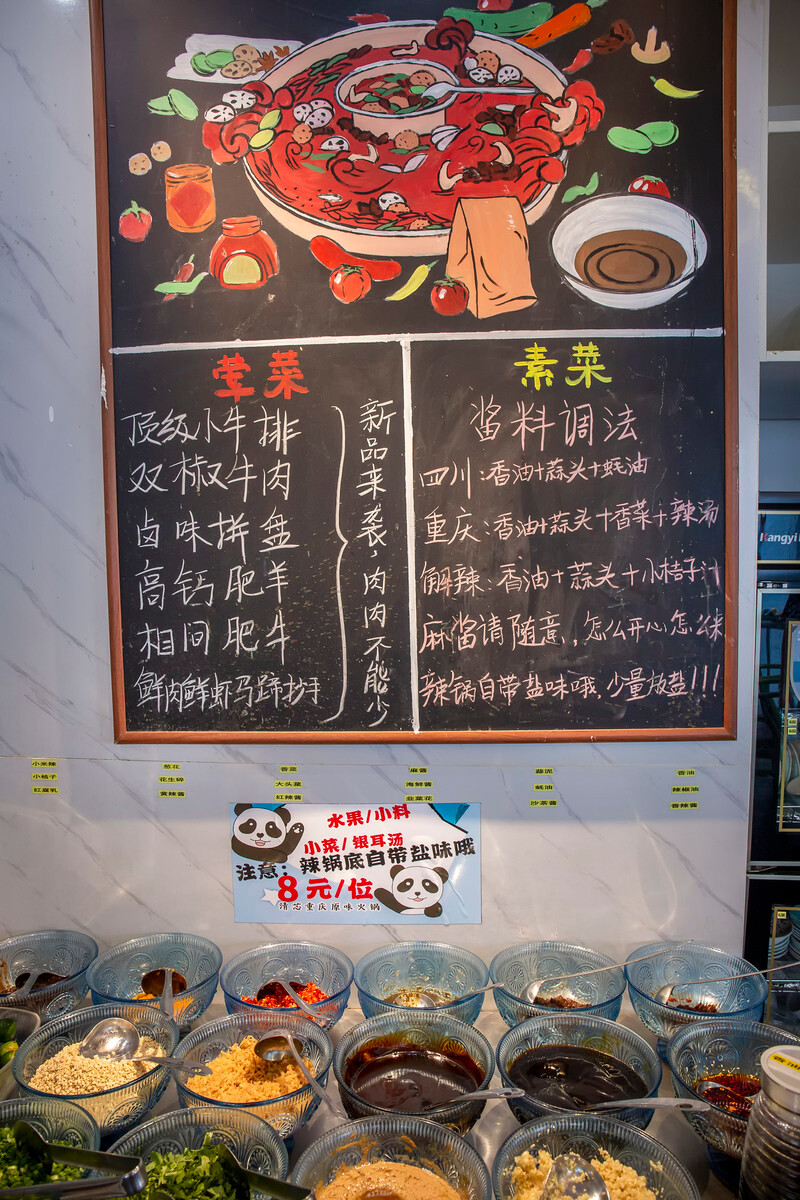 荤菜
顶级小牛排
双椒牛肉
卤味拼盘
高钙肥羊
相间肥牛
鲜肉鲜虾马蹄抄手
新品来袭，肉肉不能少
素菜
酱料调法
四川：香油+蒜头+蚝油
重庆：香油+蒜头+香菜+辣汤
解辣：香油+蒜头+小桔子汁
麻酱请随意，怎么开心怎么来
辣锅自带盐味哦，少量放盐!!!
小米辣
小桔子
红腐乳
葱花
花生碎
黄辣酱
香菜
大头菜
红辣酱
麻酱
海鲜酱
韭菜花
蒜泥
蚝油
沙茶酱
香油
辣椒油
香辣酱
水果/小料
小菜/银耳汤
注意：辣锅底自带盐味哦
8元/位
重庆原味火锅